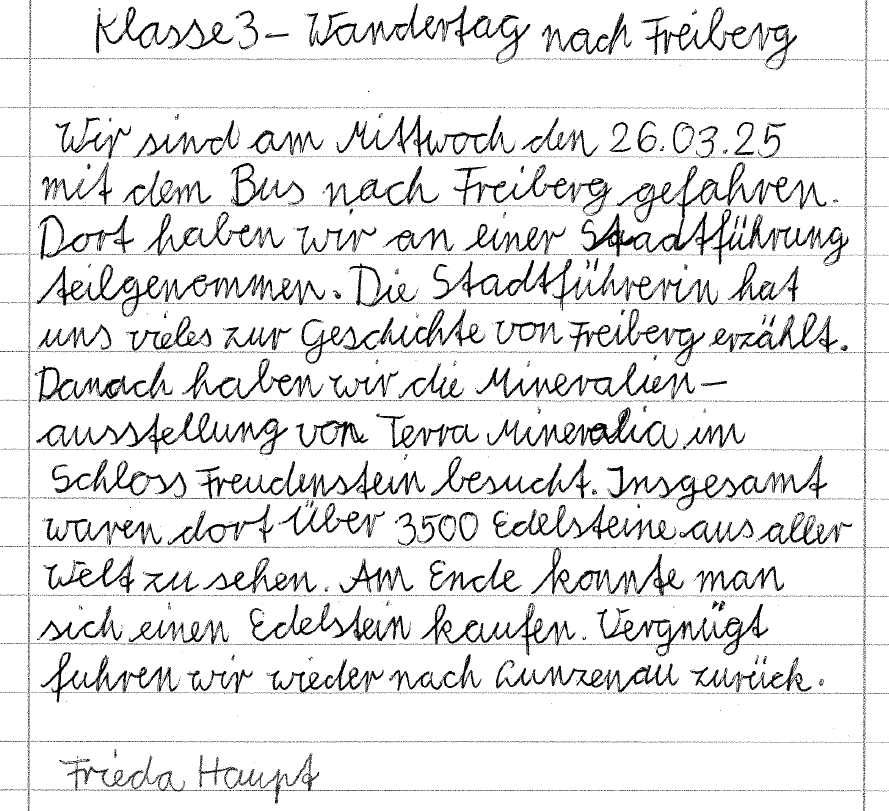 Klasse 3 - Wandertag nach Freiberg
Wir sind am Mittwoch den 26.03.25
mit dem Bus nach Freiberg gefahren.
Dort haben wir an einer Stadtführung
teilgenommen. Die Stadtführerin hat
uns vieles zur Geschichte von Freiberg erzählt.
Danach haben wir die Mineralien-
ausstellung von Terra Mineralia im
Schloss Freudenstein besucht. Insgesamt
waren dort über 3500 Edelsteine aus aller
Welt zu sehen. Am Ende konnte man
sich einen Edelstein kaufen. Vergnügt
fuhren wir wieder nach Lunzenau zurück.
Frieda Haupt